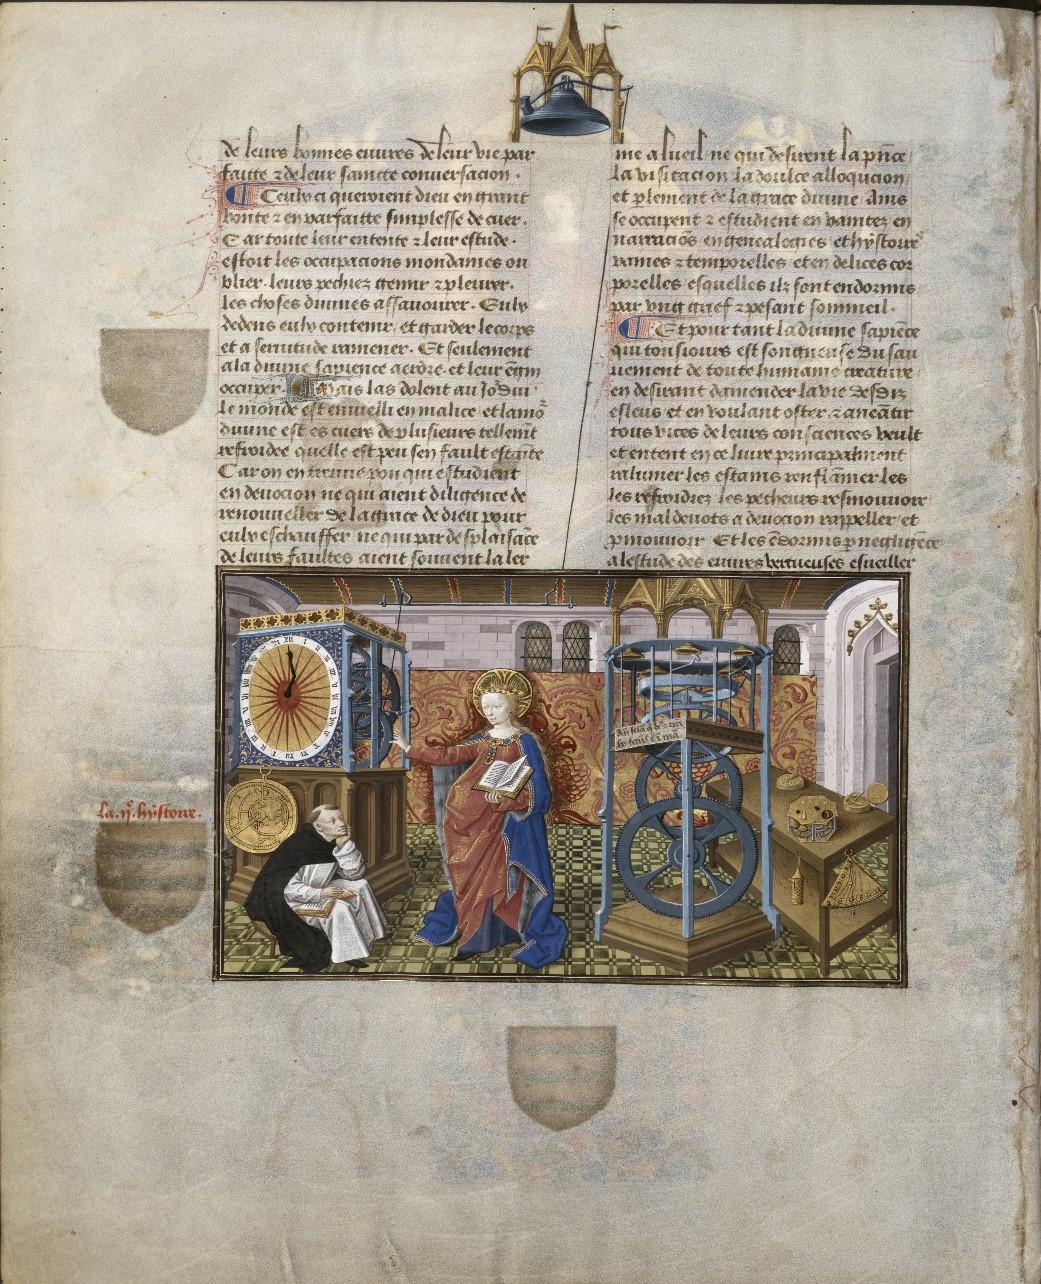 de leurs bonnes euures de leur vie par
faitte ⁊ de leur saincte conuersacion ·
Ceulx ci queroient dieu en grant
bonte ⁊ en parfaitte simplesse de cuer ·
Car toute leur entente ⁊ leur estude ·
estoit les occupacions mondaines ou
blier · leurs pechiez gemir ⁊ pleurer ·
les choses diuines assauourer · Eulx
dedens eulx contenir · et garder le corps
et a seruitude ramener · Et seulement
a la diuine sapience aerdre · et leur engin
occuper · Mais las dolent au jo'dui ·
le monde est enuielli en malice · et lamo'
diuine est es cuers de plusieurs tellem̄t
refroidee quelle est peu sen fault estainte
Car on en treuue pou qui estudient
en deuocion ne qui aient diligence de
renouueller de la grace de dieu pour
eulx eschauffer ne qui par desplaisāce
de leurs faultes aient souuent la ler
me a lueil · ne qui desirent la pn̄ce
la visitacion la doulce allocucion
et plement de la grace diuine Ains
se occupent ⁊ estudient en vanitez en
narraciōs en genealogies et hystoires
vaines ⁊ temporelles et en delices cor
porelles esquelles ilz sont endormis
par vng grief ⁊ pesant sommeil ·
Et pour tant la diuine sapiēce
qui tousiours est songneuse du sau
uement de toute humaine creature
en desirant damender la vie desdiz
esleus et en voulant oster ⁊ aneātir
tous vices de leurs consciences veult
et entent en ce liure principalment
ralumer les estains renflāmer les
les refroidiez les pecheurs resmouuoir
les maldeuots a deuocion rappeller et
pmouuoir Et les ēdormis p negligēce
a lestude des euures vertueuses esueiller
la .ii<sup>e</sup>. hystoire.